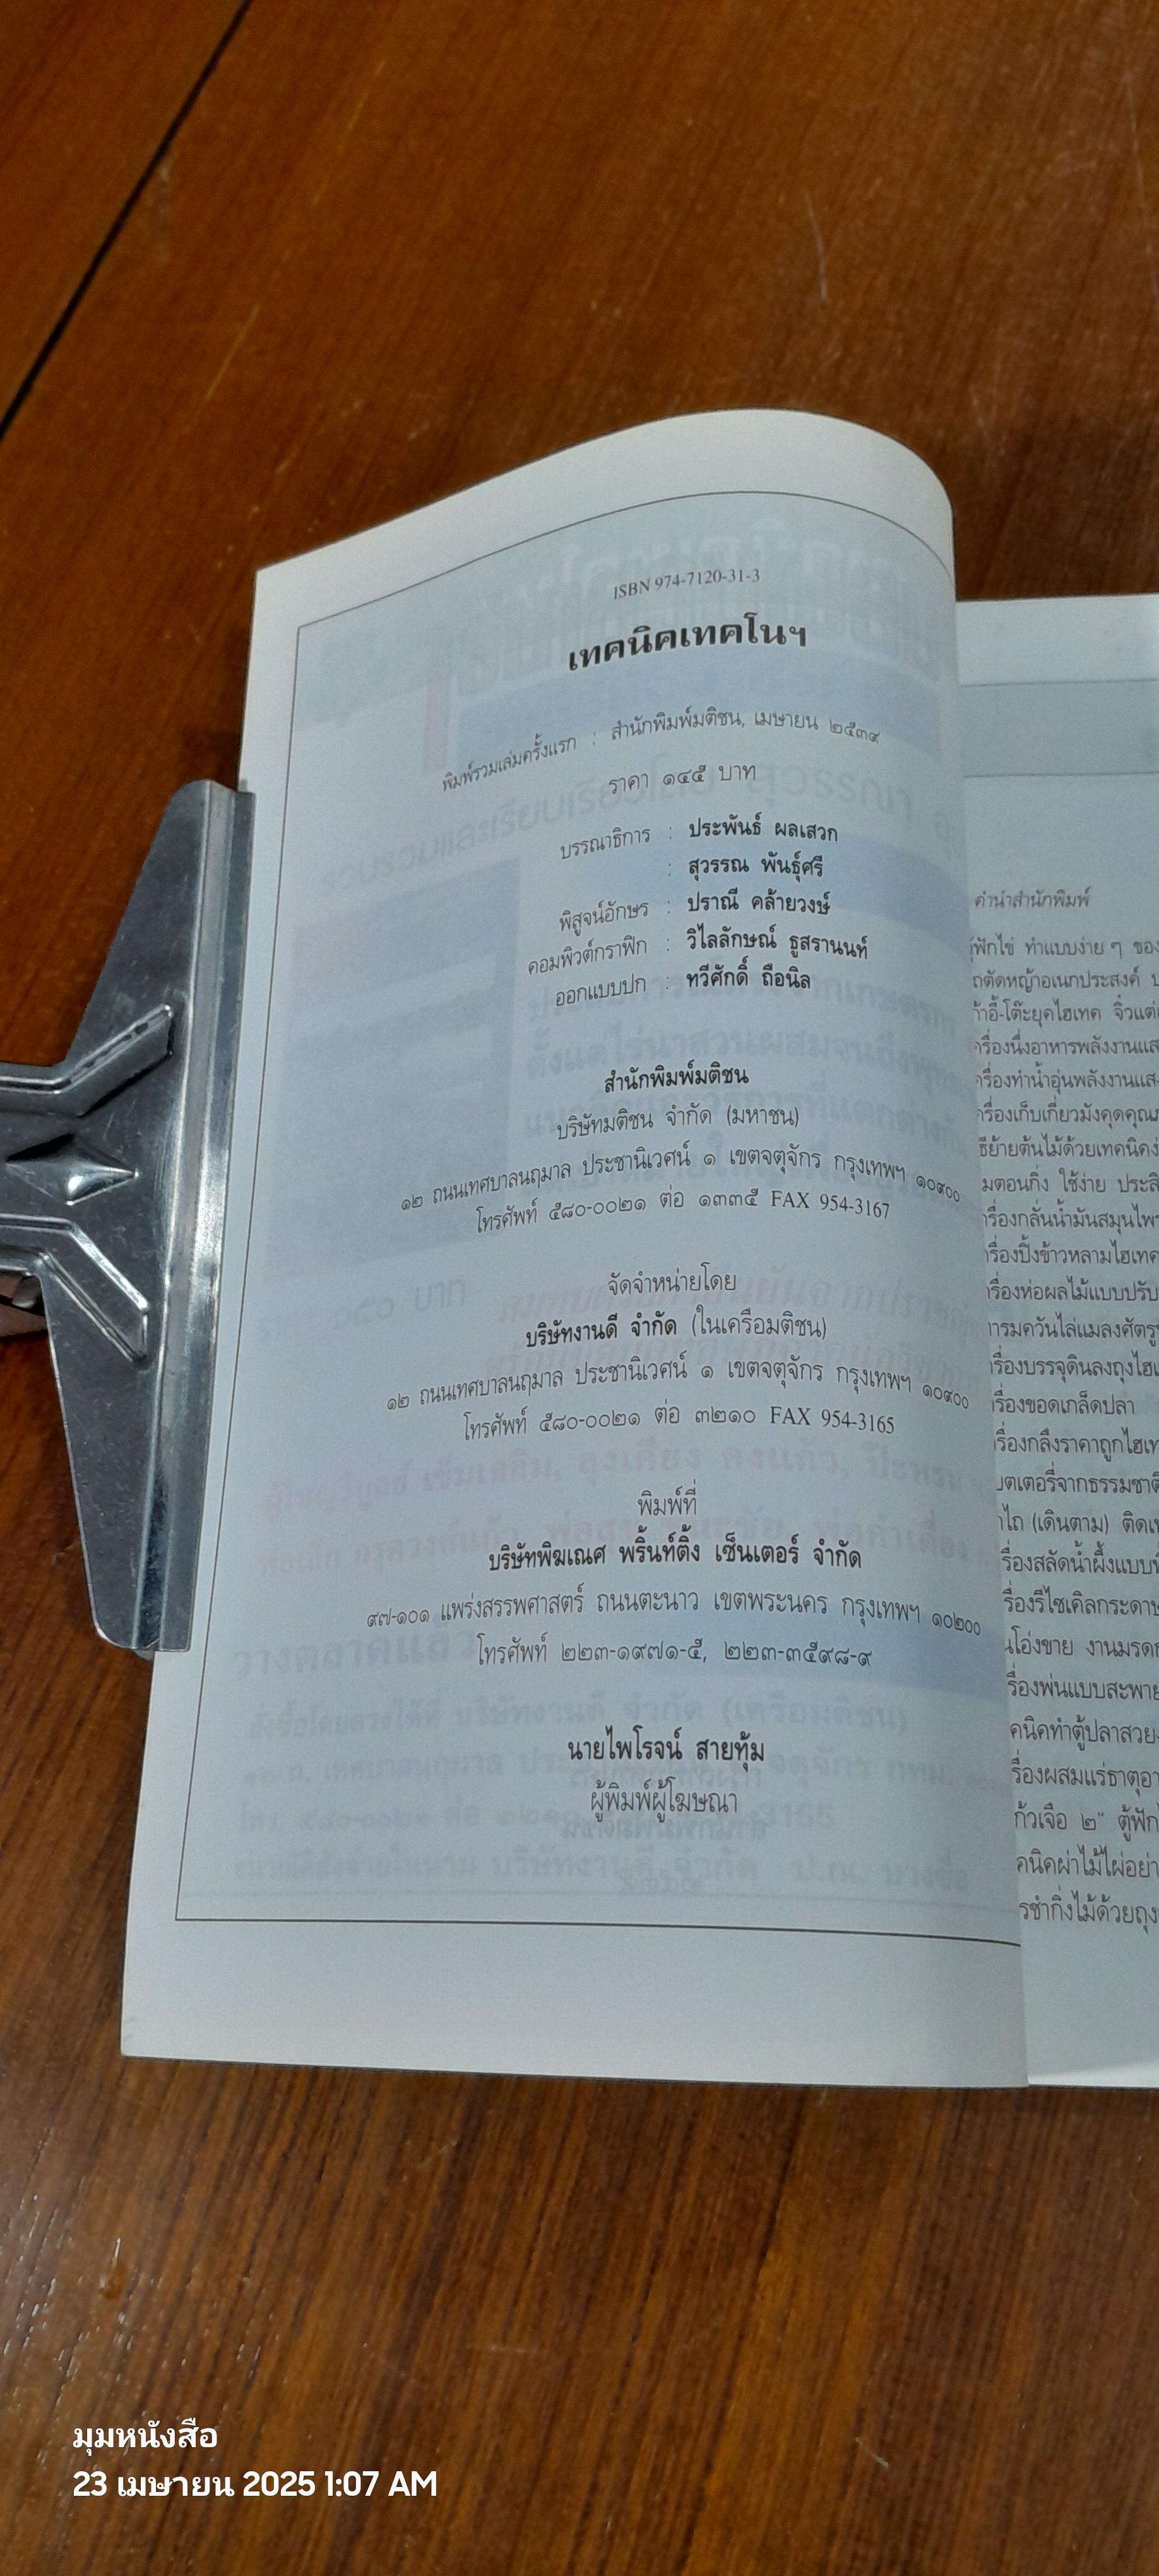 ISBN 974-7120-31-3
เทคนิคเทคโนฯ
พิมพ์รวมเล่มครั้งแรก : สำนักพิมพ์มติชน, เมษายน ๒๕๓๙
ราคา ๑๔๕ บาท
บรรณาธิการ : ประพันธ์ ผลเสวก
: สุวรรณ พันธุ์ศรี
พิสูจน์อักษร : ปราณี คล้ายวงษ์
คอมพิวต์กราฟิก : วิไลลักษณ์ ธูสรานนท์
ออกแบบปก : ทวีศักดิ์ ถือนิล
สำนักพิมพ์มติชน
บริษัทมติชน จำกัด (มหาชน)
๑๒ ถนนเทศบาลนฤมาล ประชานิเวศน์ ๑ เขตจตุจักร กรุงเทพฯ ๑๐๙๐๐
โทรศัพท์ ๕๘๐-๐๐๒๑ ต่อ ๑๓๓๕ FAX 954-3167
จัดจำหน่ายโดย
บริษัทงานดี จำกัด (ในเครือมติชน)
๑๒ ถนนเทศบาลนฤมาล ประชานิเวศน์ ๑ เขตจตุจักร กรุงเทพฯ ๑๐๙๐๐
โทรศัพท์ ๕๘๐-๐๐๒๑ ต่อ ๓๒๑๐ FAX 954-3165
พิมพ์ที่
บริษัทพิฆเณศ พริ้นท์ติ้ง เซ็นเตอร์ จำกัด
๙๗-๑๐๑ แพร่งสรรพศาสตร์ ถนนตะนาว เขตพระนคร กรุงเทพฯ ๑๐๒๐๐
โทรศัพท์ ๒๒๓-๑๙๗๑-๕, ๒๒๓-๓๕๙๘-๙
นายไพโรจน์ สายทุ้ม
ผู้พิมพ์ผู้โฆษณา
คำนำสำนักพิมพ์
ฟักไข่ ทำแบบง่าย ๆ ของ
ตัดหญ้าอเนกประสงค์
อี้-โต๊ะยุคไฮเทค จิ๋วแต่
นึ่งอาหารพลังงานแส
ทำน้ำอุ่นพลังงานแสง
เก็บเกี่ยวมังคุดคุณ
ย้ายต้นไม้ด้วยเทคนิค
ตอนกิ่ง ใช้ง่าย
กลั่นน้ำมันสมุนไพร
ปิ้งข้าวหลามไฮเทค
ห่อผลไม้แบบปรับ
รมควันไล่แมลงศัตรู
บรรจุดินลงถุง
ขอดเกล็ดปลา
กลึงราคาถูก
จากธรรมชาติ
ไถ (เดินตาม)
สลัดน้ำผึ้งแบบ
รีไซเคิลกระดาษ
โอ่งขาย งานมรดก
พ่นแบบสะพาย
คนิคทำตู้ปลาสวย
ผสมแร่ธาตุ
ก้วเจือ ๒" ตู้ฟัก
คนิคผ่าไม้ไผ่อย่า
ชำกิ่งไม้ด้วยถุง
มุมหนังสือ
23 เมษายน 2025 1:07 AM